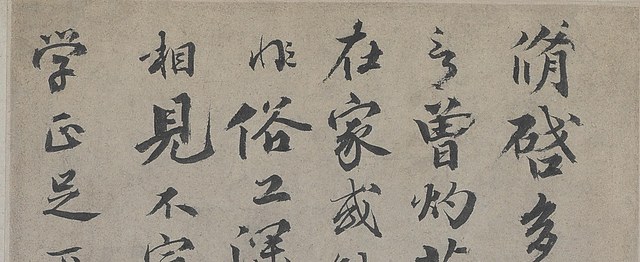 脩啓多
曾灼
在家或
非俗工深
相見不
学正足